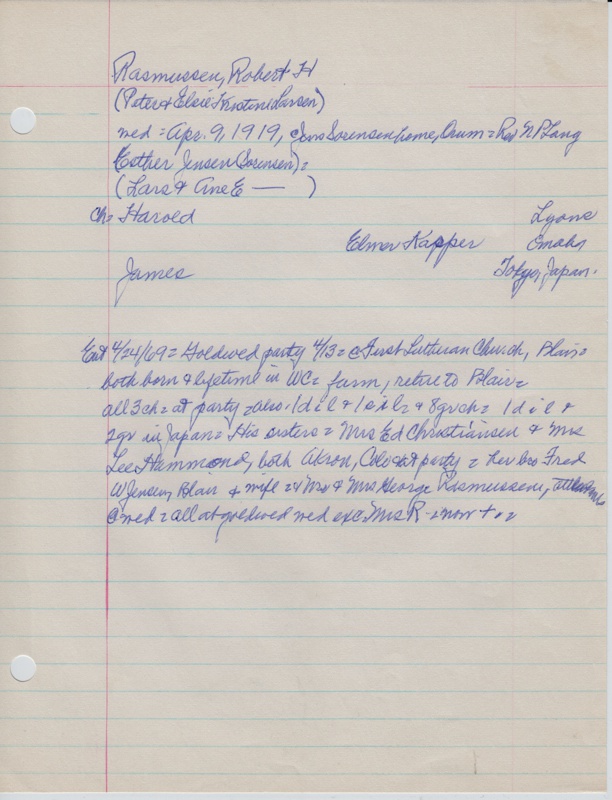 Rasmussen, Robert H
(Peter & Elsie Kristine Larsen)
wed = Apr. 9, 1919, @ Jens Sorensen home, Orum = Rev N P Lang
Esther Jensen (Sorensen) =
(Lars & Ane E — )
ch = Harold Lyons
Elmer Kapper Omaha
James Tokyo, Japan.
Ent 4/24/69 = Goldwed party 4/3 = @ First Lutheran Church, Blair =
both born & lifetime in WC = farm, retire to Blair =
all 3 ch = at party = also 1 d i l & 1 s i l = & 8 grch = 1 d i l &
2 gr in Japan = His sisters = Mrs Ed Christiansen & Mrs
Lee Hammond, both Akron, Colo = at party = her bro Fred
W Jensen, Blair & wife = & Mr & Mrs George Rasmussen,
@ wed = all at goldwed wed exc Mrs R - now